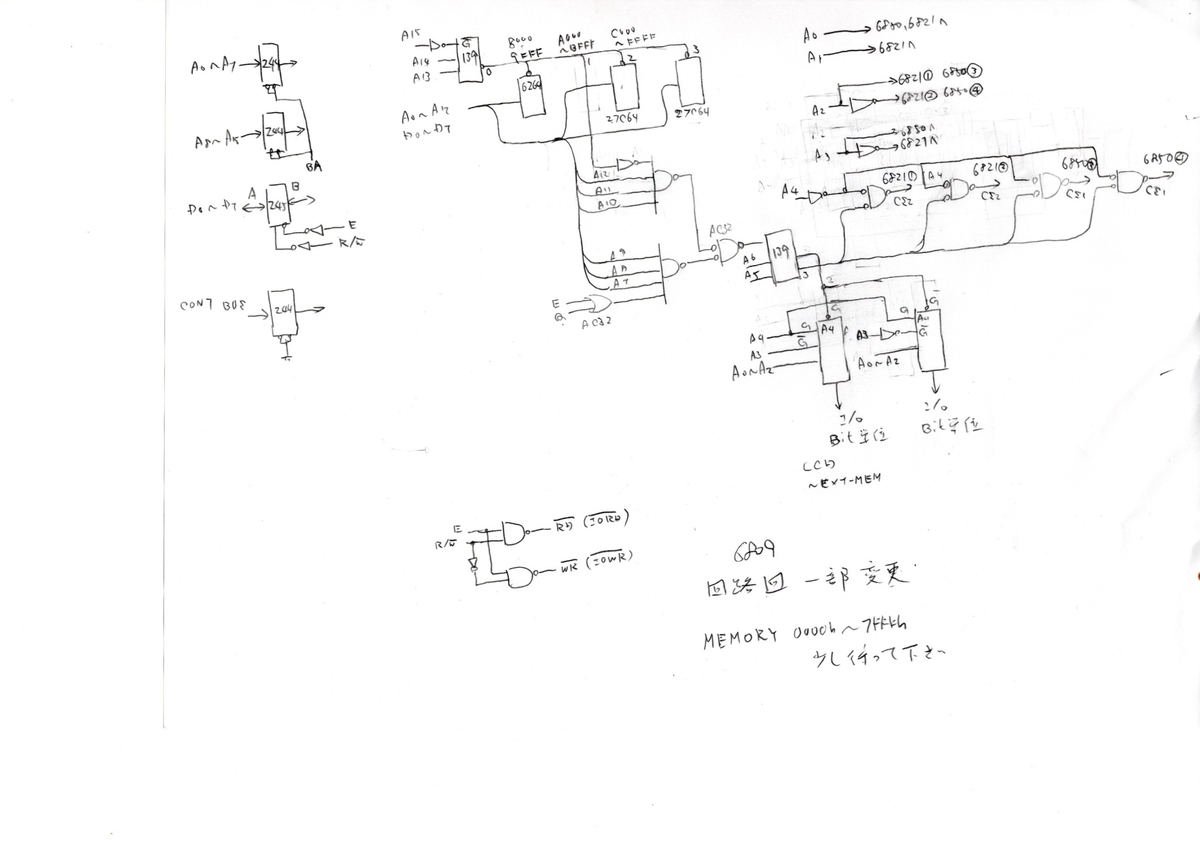 A0~A7
244
A8~A15
244
BA
D0~D7
A
B
245
E
R/W̅
CONT BUS
244
A15
A14
A13
G̅
139
0
8000
9FFF
A000
~BFFF
C000
~FFFF
1
2
3
6264
27C64
27C64
A0~A12
D0~D7
A12
A11
A10
A9
A8
A7
E
Q
AC32
AC32
A6
A5
139
2
3
A0
6850,6821へ
A1
6821へ
A2
6821① 6850③
6821② 6850④
A3
6850へ
6821へ
A4
6821①
CS2
A4
6821②
CS2
CS1
6850④
CS1
G
A4
A4
G
G̅
A3
A0~A2
I/O
Bit単位
LCD
~EXT-MEM
G
G
G̅
A3
A0~A2
I/O
Bit単位
E
R/W̅
R̅D̅ (I̅O̅R̅D̅)
W̅R̅ (I̅O̅W̅R̅)
6809
回路回 一部変更
MEMORY 0000h~7FFFh
少し待って下さい